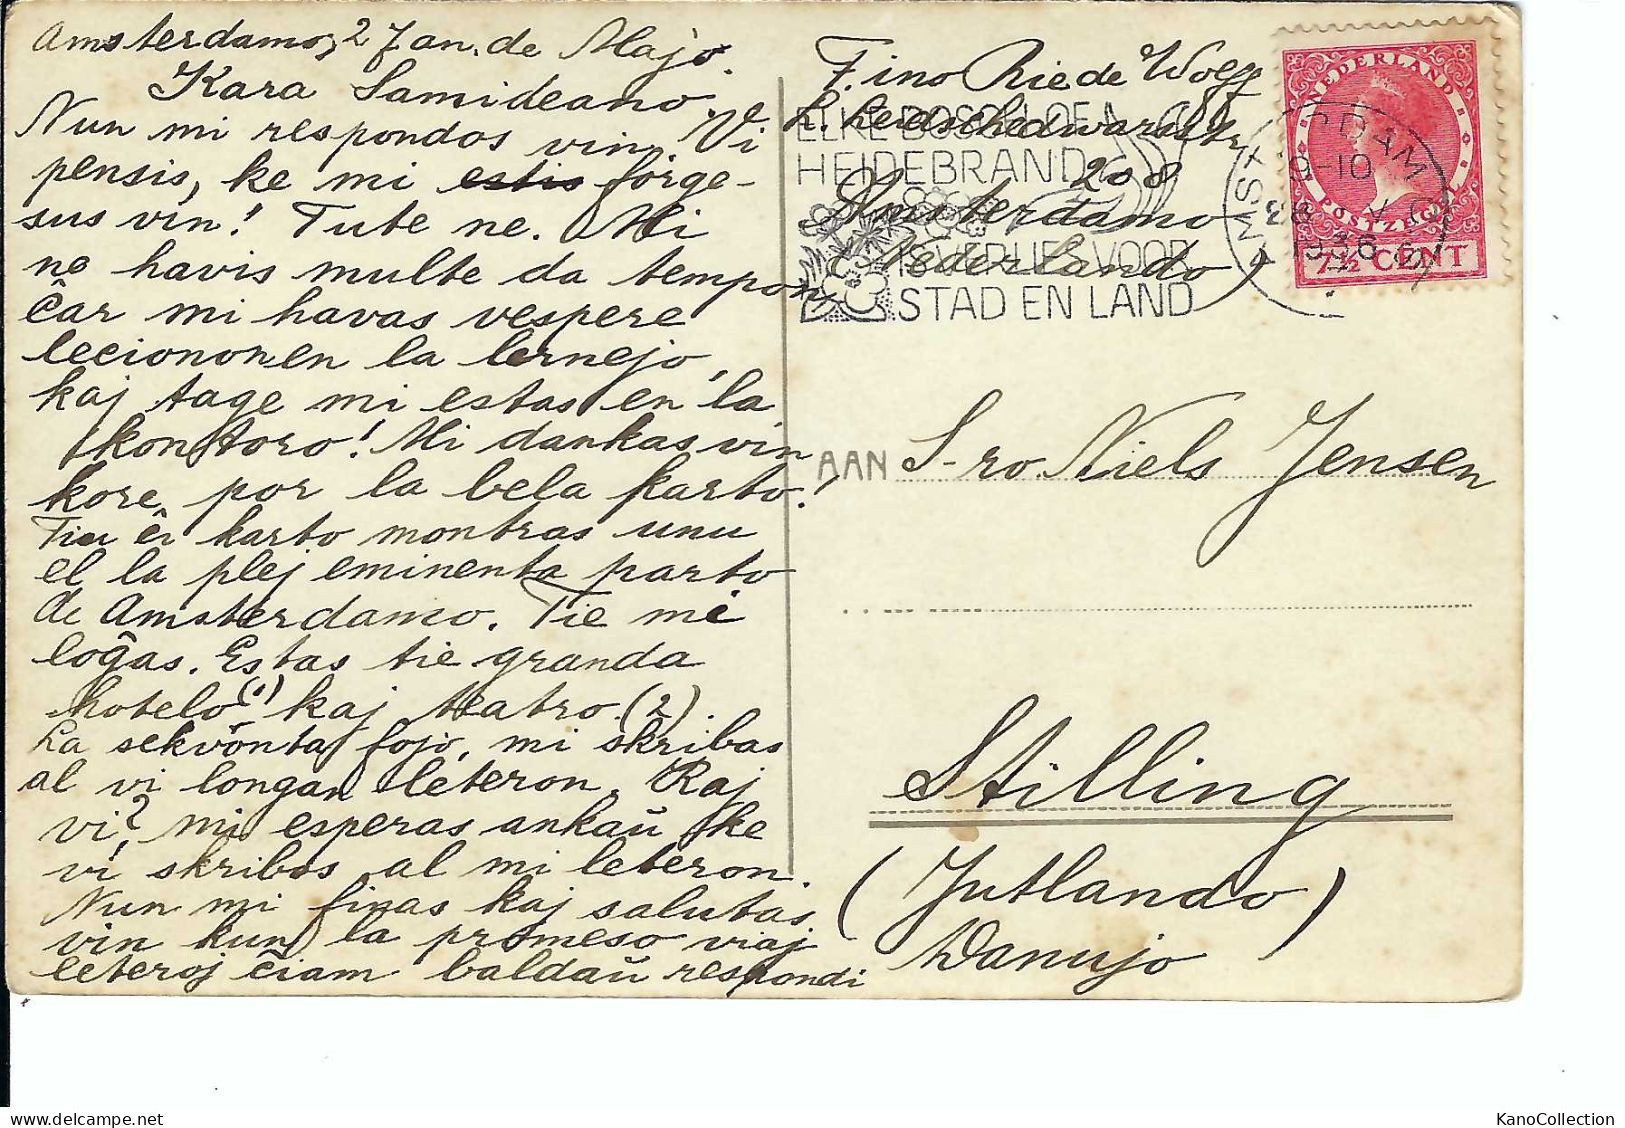 Amsterdamo, 27an. de Majo.
Kara Samideano.
Nun mi respondos vin. Vi
pensis, ke mi estis forge-
sus vin! Tute ne. Mi
ne havis multe da tempon,
ĉar mi havas vespere
leciononen la lernejo,
kaj tage mi estas en la
kontoro! Mi dankas vin
kore, por la bela karto!
Tiu ĉi karto montras unu
el la plej eminenta parto
de Amsterdamo. Tie mi
loĝas. Estas tie granda
hotelo (1) kaj teatro (2).
La sekvonta fojo, mi skribas
al vi longan leteron. Kaj
vi? mi esperas ankaŭ ke
vi skribos al mi leteron.
Nun mi finas kaj salutas
vin kun la promeso viaj
leteroj ĉiam baldaŭ respondi
F.ino Rie de Wolff
208
Amsterdamo
Nederlando
HEIDEBRAND
VOOR
STAD EN LAND
NEDERLAND
POSTZEGEL
7½ CENT
AMSTERDAM
9-10
28 V
1936
AAN S-ro. Niels Jensen
Stilling
(Jutlando)
Danujo
KanoCollection